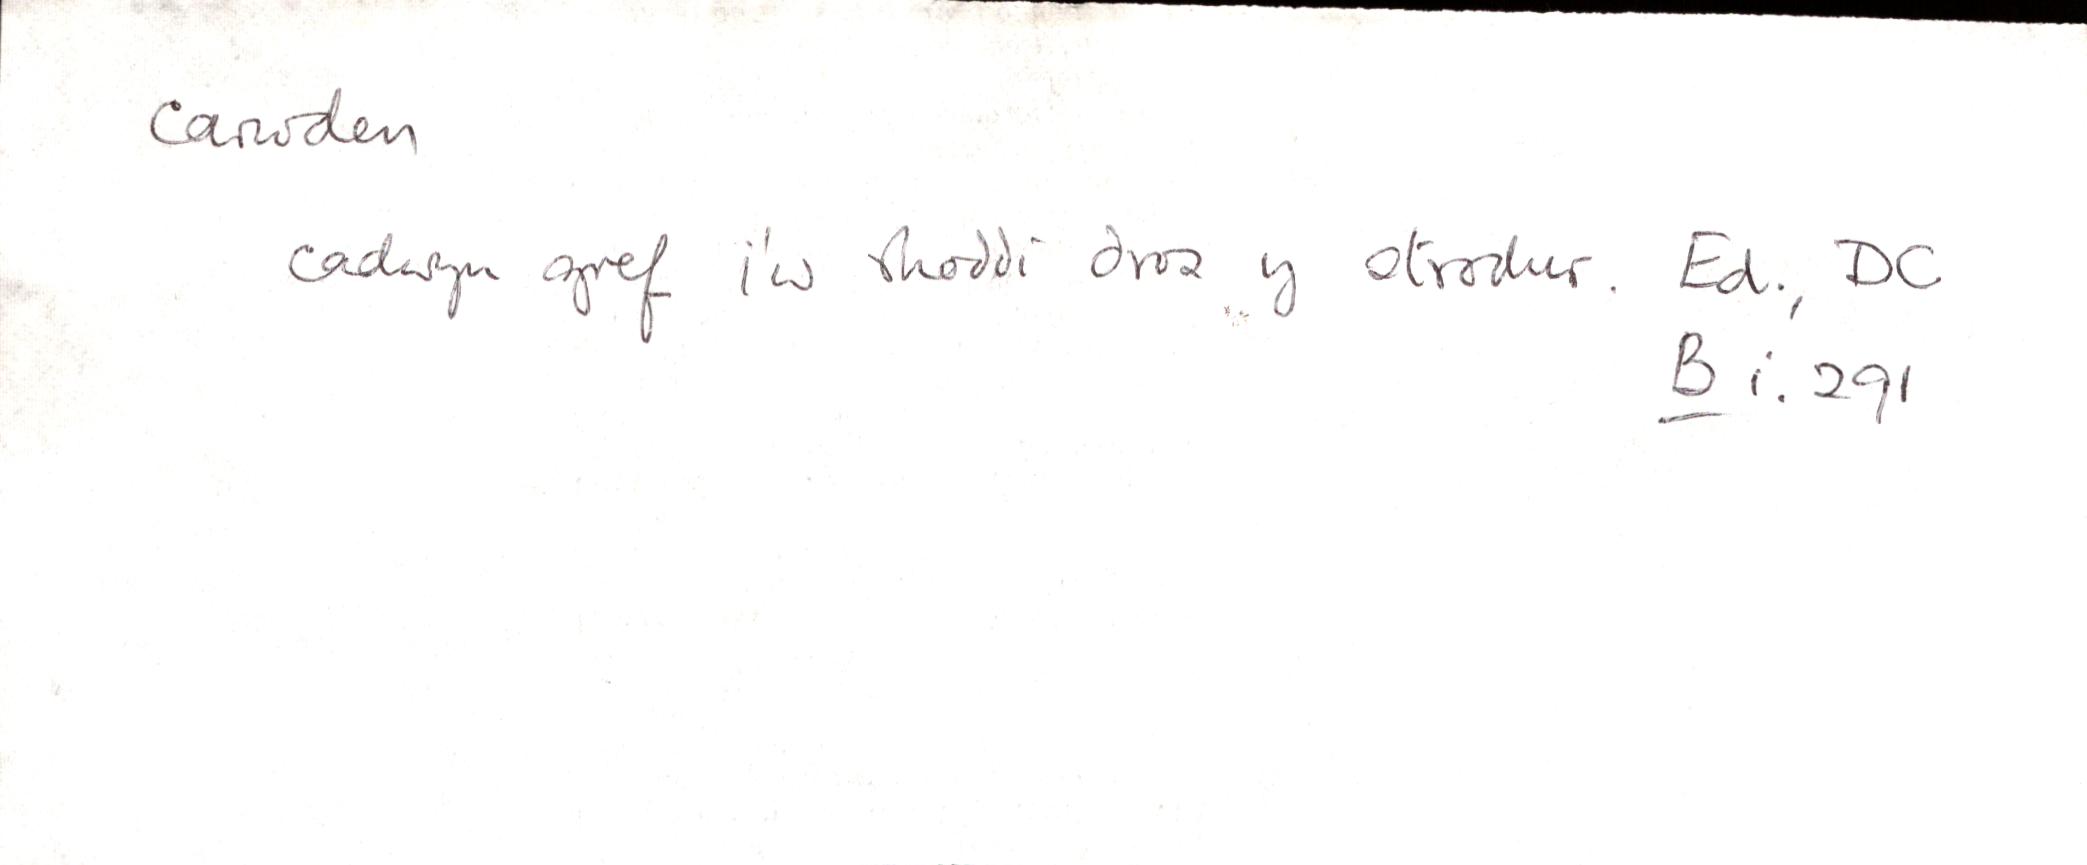 carwden
cadwyn gref i'w rhoddi dros y strodur. Ed., DC
B i. 291